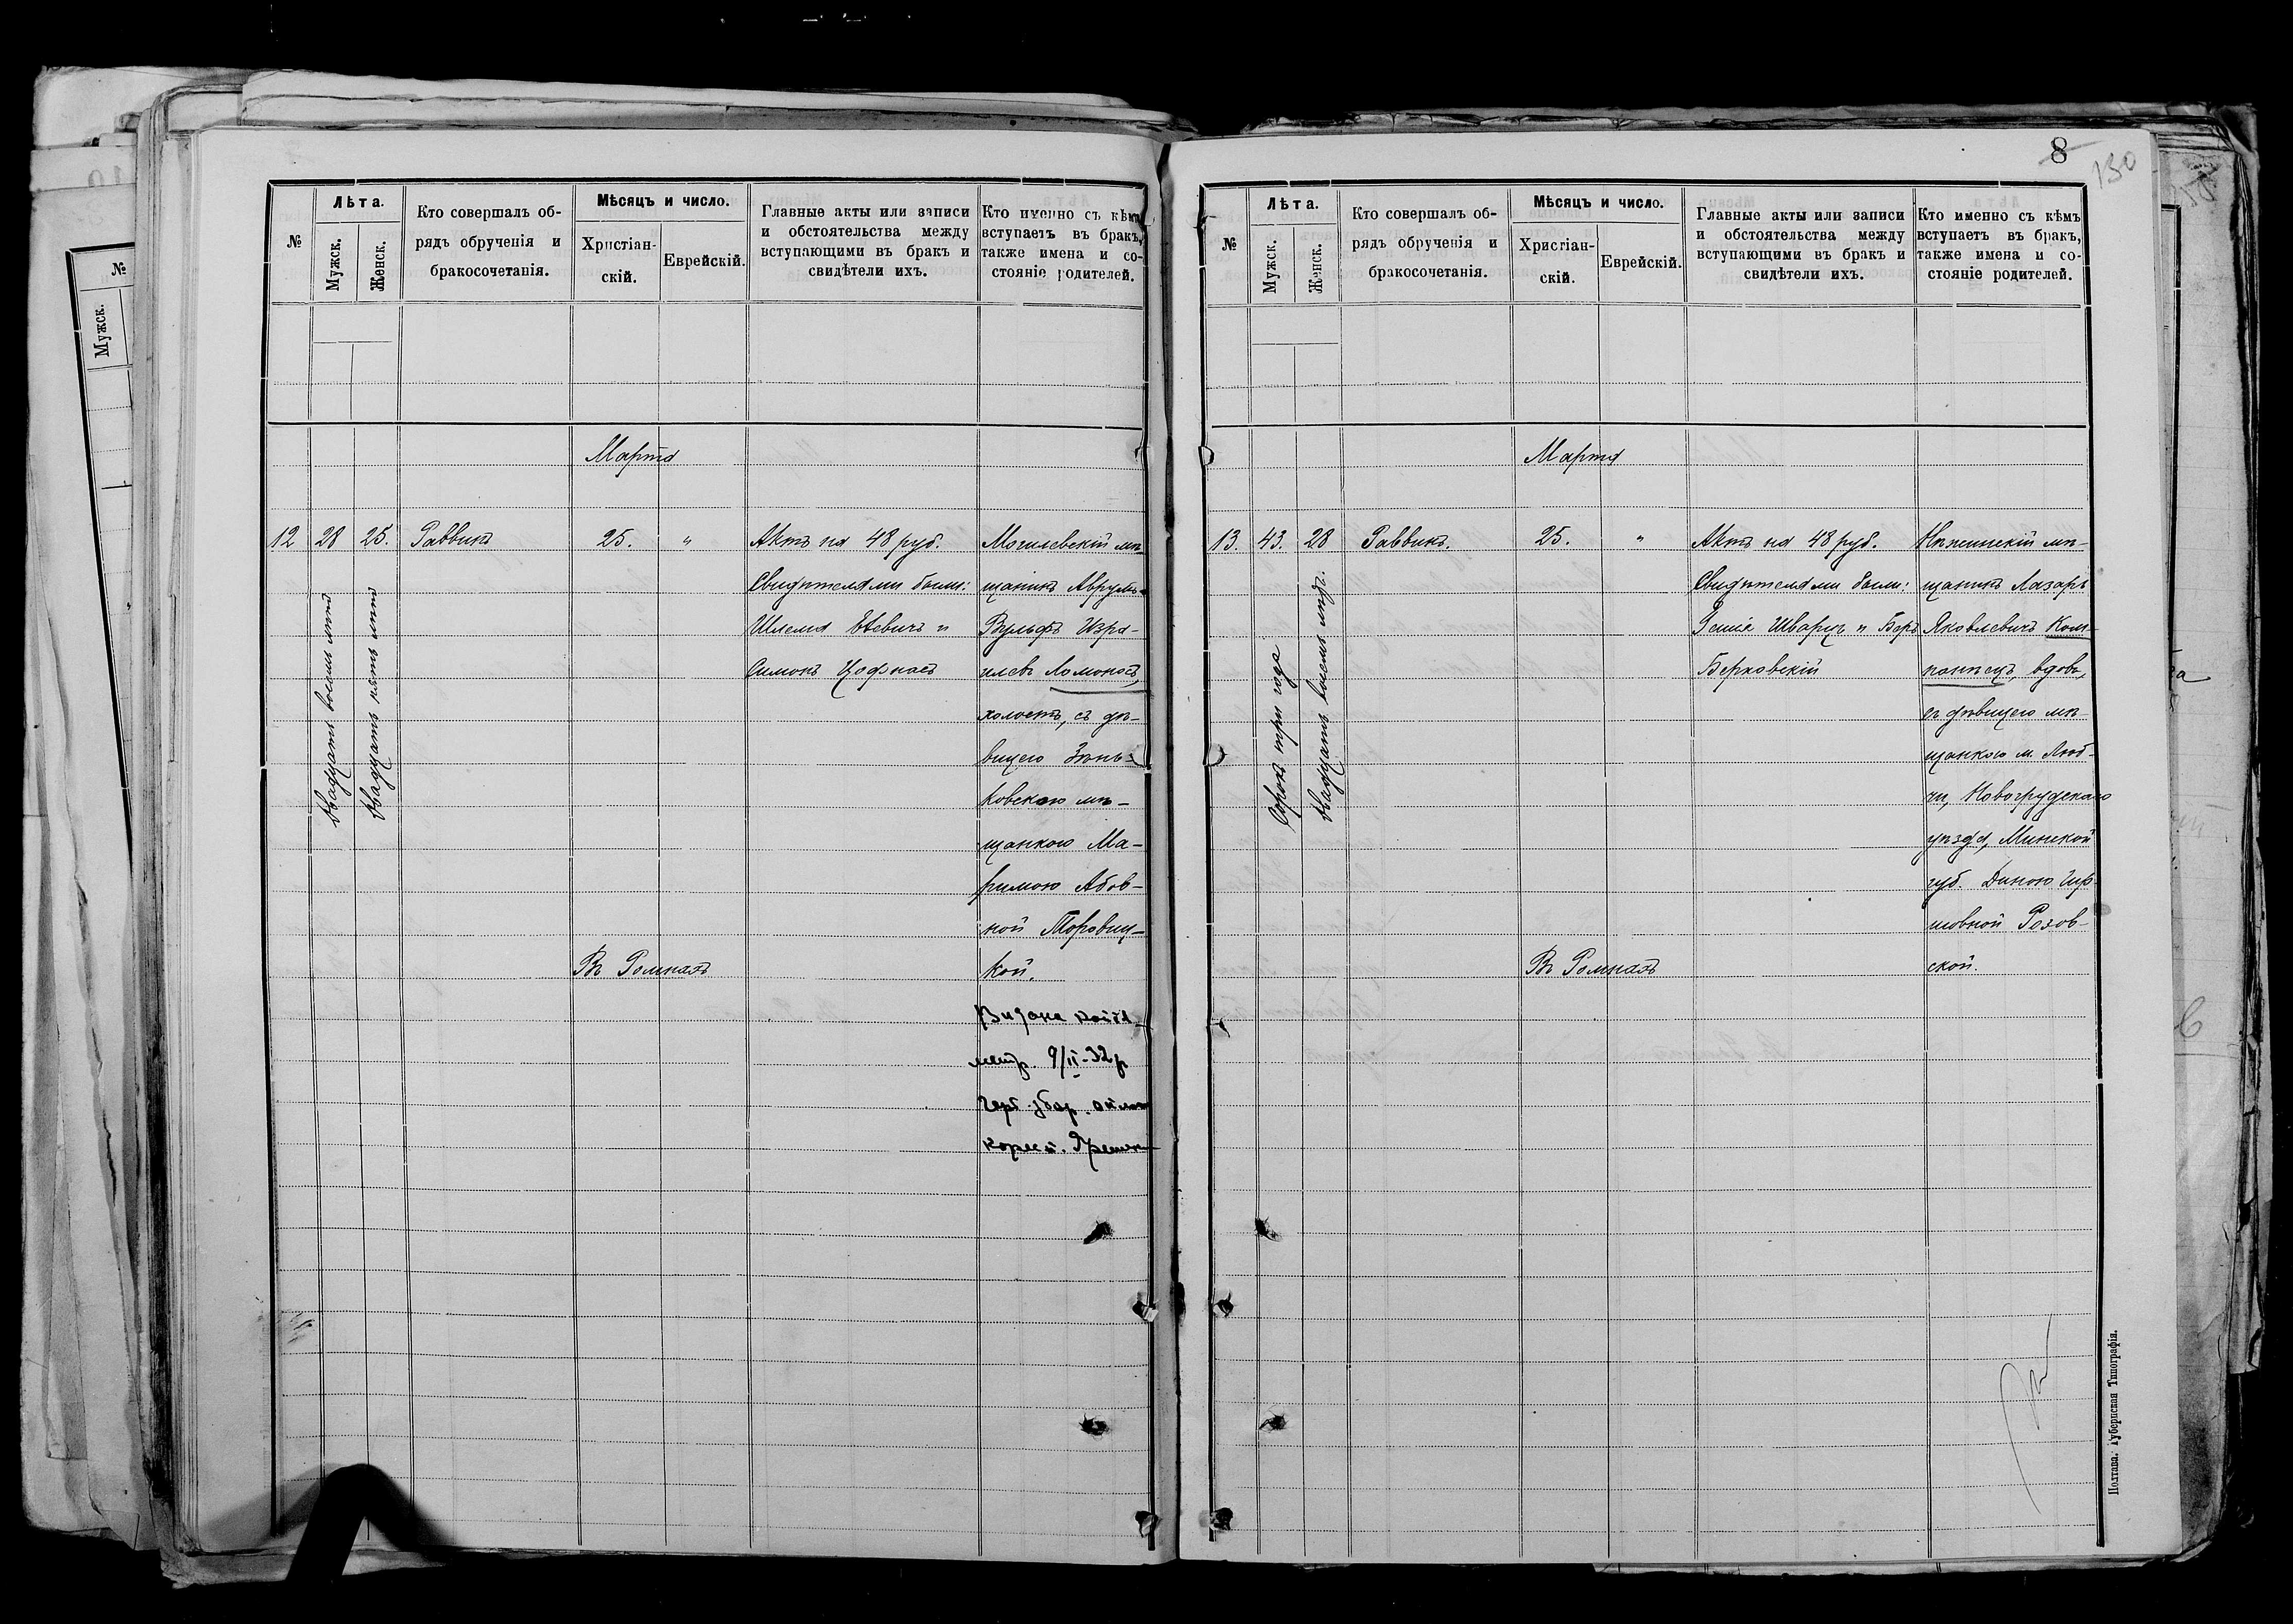 №
Лѣта.
Мужск.
Женск.
Кто совершалъ об-
рядъ обрученія и
бракосочетанія.
Мѣсяцъ и число.
Христіан-
скій.
Еврейскій.
Главные акты или записи
и обстоятельства между
вступающими въ бракъ и
свидѣтели ихъ.
Кто именно съ кѣмъ
вступаетъ въ бракъ,
также имена и со-
стояніе родителей.
Марта
12
28
25.
двадцать восемь лѣтъ
двадцать пять лѣтъ
Раввинъ
25.
"
Актъ на 48 руб.
Свидѣтелями были:
Шлема Евевичъ и
Симонъ Цофнасъ
Могилевскій мѣ-
щанинъ Аврумъ-
Вульфъ Изра-
илевъ Ломоносъ,
холостъ, съ дѣ-
вицею Зѣнь-
ковскою мѣ-
щанкою Ма-
римою Абов-
ной Торовиц-
кой.
Въ Ромнахъ
9/II-32р
8
130
№
Лѣта.
Мужск.
Женск.
Кто совершалъ об-
рядъ обрученія и
бракосочетанія.
Мѣсяцъ и число.
Христіан-
скій.
Еврейскій.
Главные акты или записи
и обстоятельства между
вступающими въ бракъ и
свидѣтели ихъ.
Кто именно съ кѣмъ
вступаетъ въ бракъ,
также имена и со-
стояніе родителей.
Марта
13.
43.
28
Сорокъ три года
двадцать восемь лѣтъ.
Раввинъ.
25.
"
Актъ на 48 руб.
Свидѣтелями были:
Шварцъ и Беръ
Берковскій
Нѣжинскій мѣ-
щанинъ Лазарь
Яковлевичъ Ком-
панѣецъ, вдовъ,
съ дѣвицею мѣ-
щанкою м. Люб-
чи, Новогрудскаго
уѣзда, Минской
губ. Диною Гир-
шовной Розов-
ской.
Въ Ромнахъ
Полтава. Губернская Типографія.
№
Мужск.